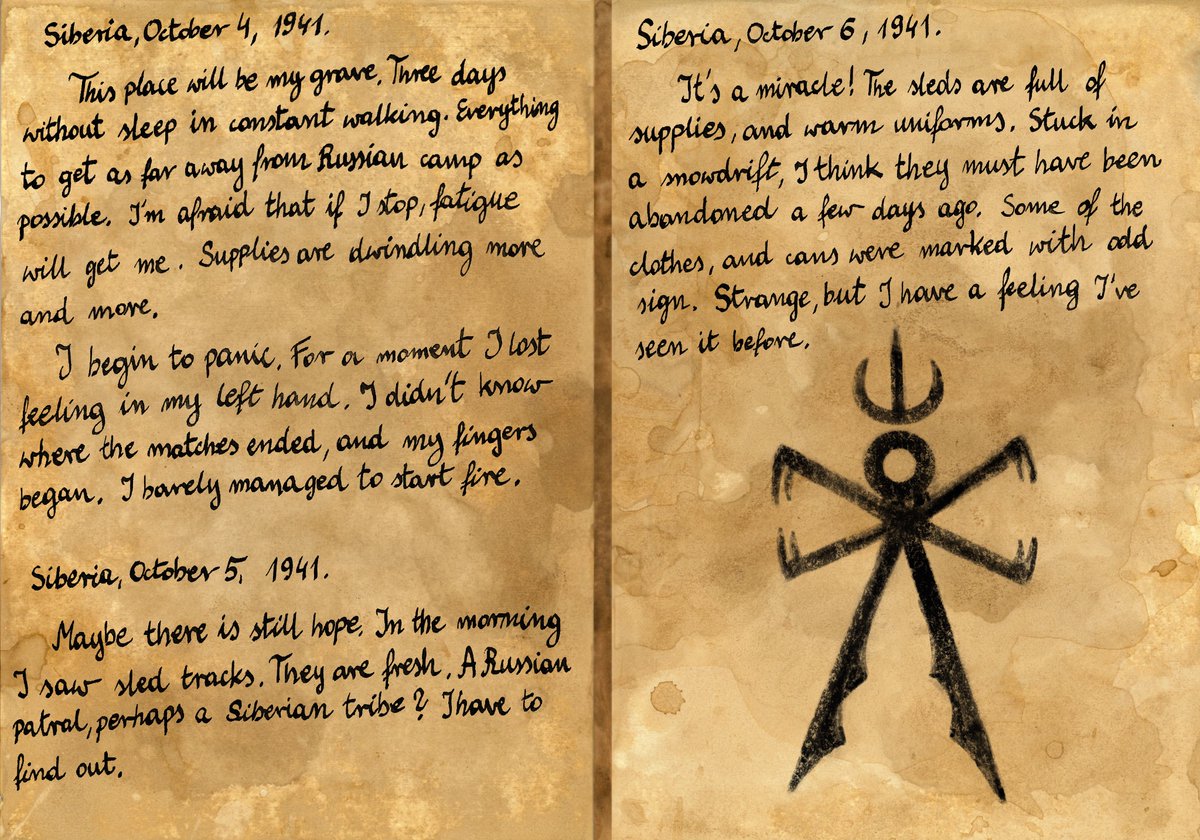 Siberia, October 4, 1941.
This place will be my grave. Three days
without sleep in constant walking. Everything
to get as far away from Russian camp as
possible. I'm afraid that if I stop, fatigue
will get me. Supplies are dwindling more
and more.
I begin to panic. For a moment I lost
feeling in my left hand. I didn't know
where the matches ended, and my fingers
began. I barely managed to start fire.
Siberia, October 5, 1941.
Maybe there is still hope. In the morning
I saw sled tracks. They are fresh. A Russian
patral, perhaps a Siberian tribe? I have to
find out.
Siberia, October 6, 1941.
It's a miracle! The sleds are full of
supplies, and warm uniforms. Stuck in
a snowdrift, I think they must have been
abandoned a few days ago. Some of the
clothes, and cans were marked with odd
sign. Strange, but I have a feeling I've
seen it before.